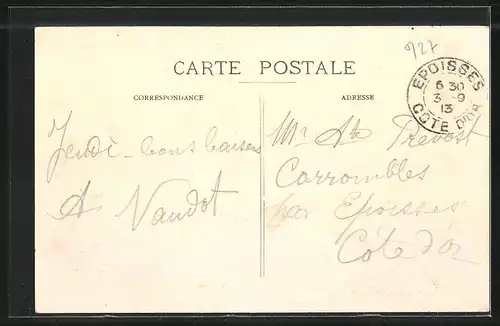 927
CARTE POSTALE
CORRESPONDANCE
ADRESSE
EPOISSES
6 30
3 - 9
13
COTE D'OR
Jeudi - bons baisers
A Naudot
Mr Prévost
Corrombles
par Epoisses
Côte d'or